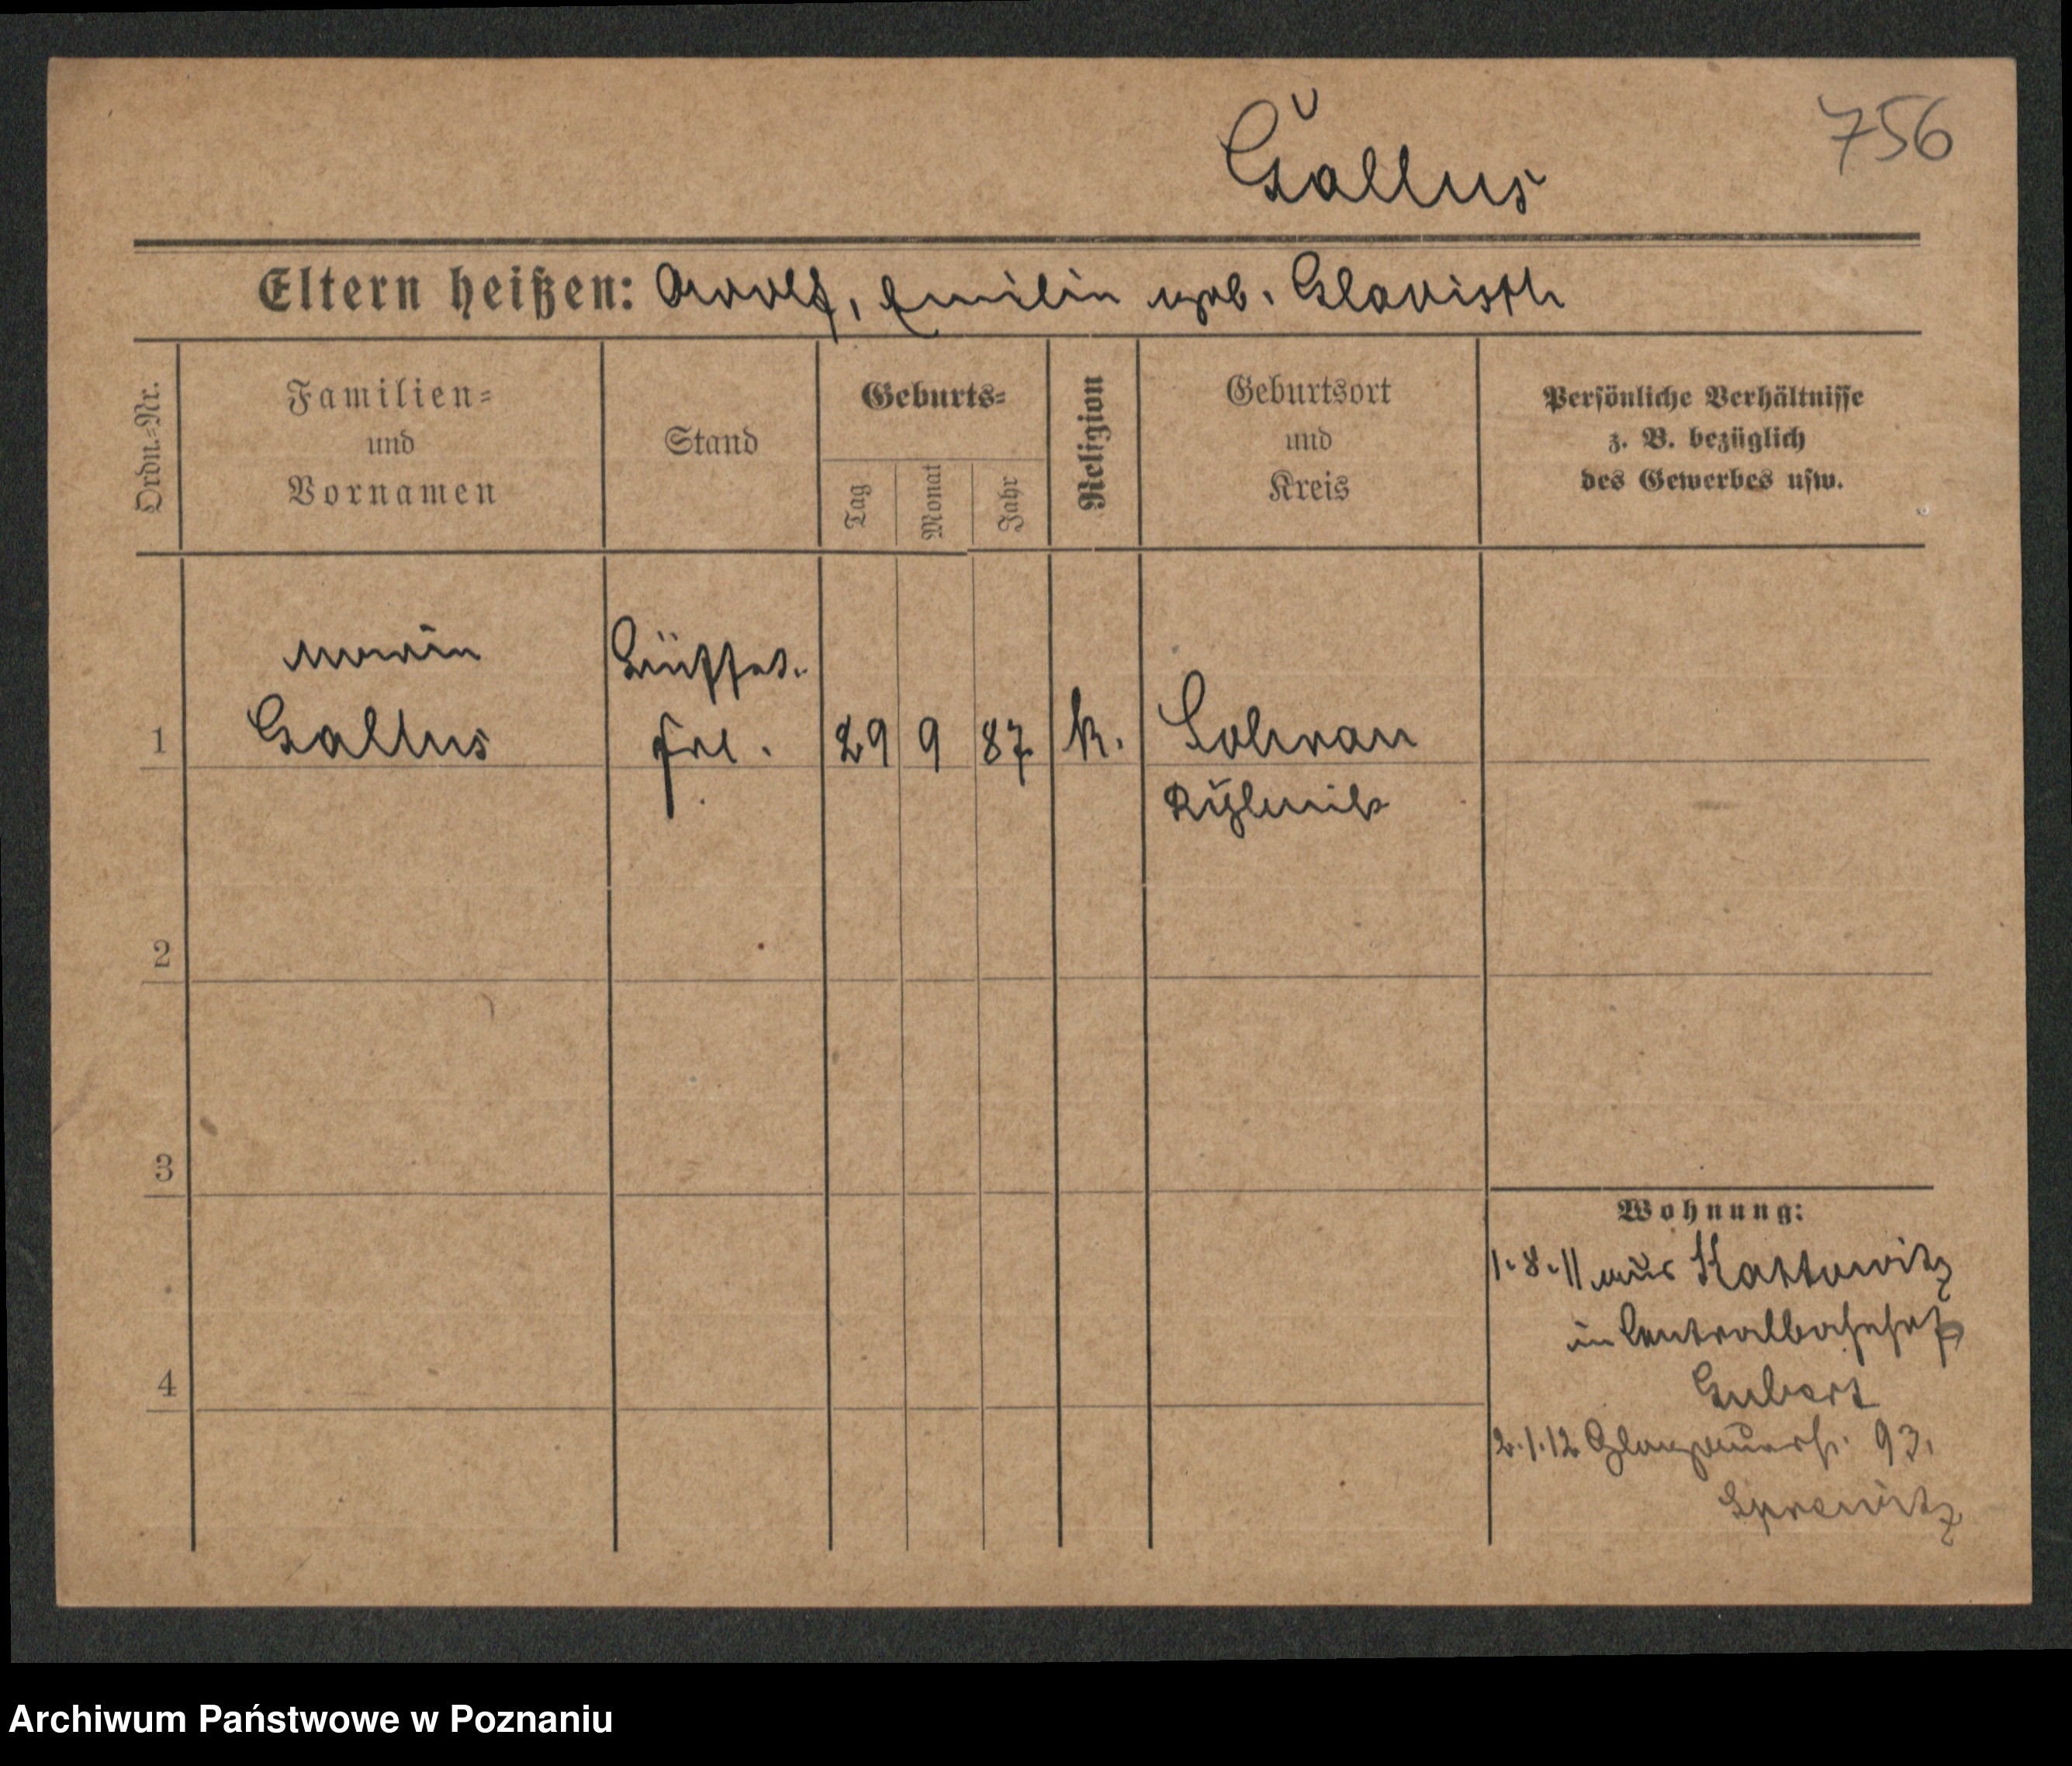 Gallus
756
Eltern heißen: Adolf, Emilie geb. Slavisth
Ordn.-Nr.
Familien-
und
Vornamen
Stand
Geburts-
Tag
Monat
Jahr
Religion
Geburtsort
und
Kreis
Persönliche Verhältnisse
z. B. bezüglich
des Gewerbes usw.
Marie
Gallus
Büffet.
frl.
1
29
9
87
k.
Sohrau
Rybnik
2
3
4
Wohnung:
1.8.11 aus Kattowitz
in Centralbahnhof
2.1.12 Glogauerst. 93.
Archiwum Państwowe w Poznaniu